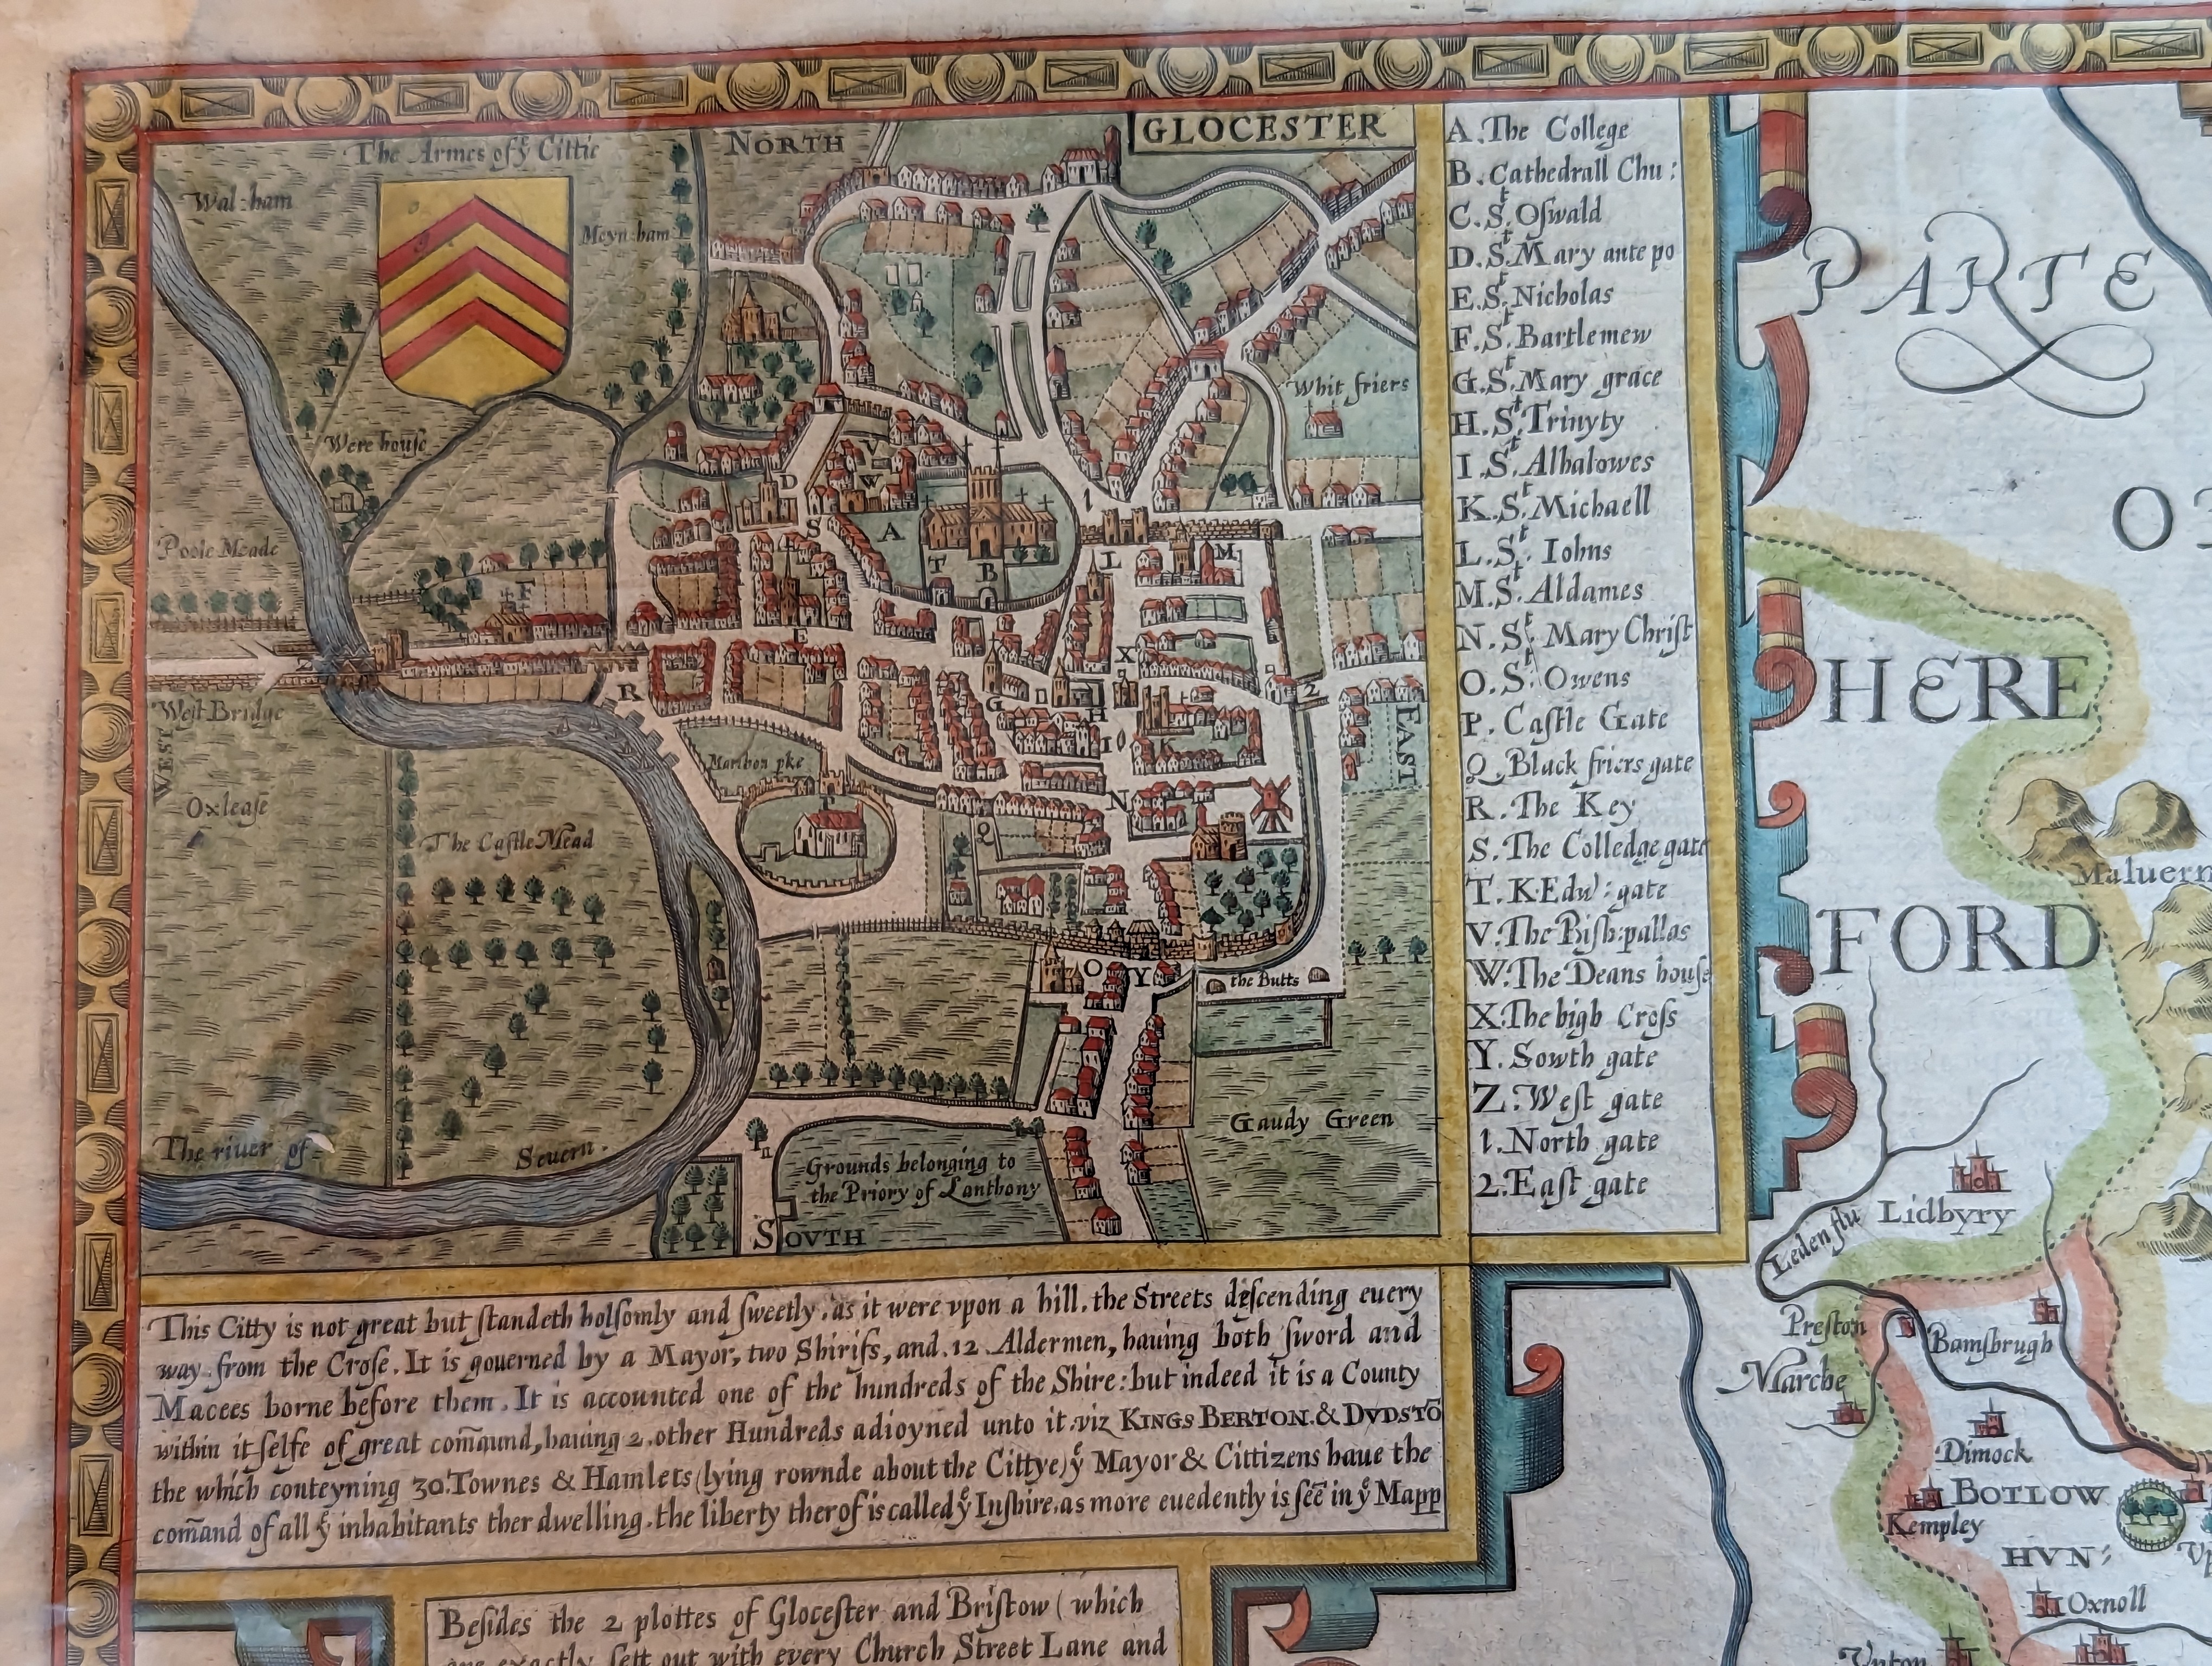 The Armes of yͤ Cittie
NORTH
GLOCESTER
Wal:ham
Meyn:ham
Were house
Poole Meade
Whit friers
C
V
W
D
S
A
T
B
1
L
M
F
E
Z
R
West Bridge
WEST
X
G
H
I
K
2
EAST
Maribon pke
P
N
Q
Oxlease
The Castle Mead
O
Y
the Butts
Gaudy Green
The riuer of
Seuern.
Grounds belonging to
the Priory of Lanthony
SOVTH
A. The College
B. Cathedrall Chu:
C. Sᵗ. Oſwald
D. Sᵗ. Mary ante po
E. Sᵗ. Nicholas
F. Sᵗ. Bartlemew
G. Sᵗ. Mary grace
H. Sᵗ. Trinyty
I. Sᵗ. Alhalowes
K. Sᵗ. Michaell
L. Sᵗ. Iohns
M. Sᵗ. Aldames
N. Sᵗ. Mary Chriſt
O. Sᵗ. Owens
P. Caſtle Gate
Q. Black friers gate
R. The Key
S. The Colledge gate
T. K. Edw: gate
V. The Biſh: pallas
W. The Deans houſe
X. The high Croſs
Y. Sowth gate
Z. Weſt gate
1. North gate
2. Eaſt gate
This Citty is not great but ſtandeth holſomly and ſweetly, as it were vpon a hill, the Streets deſcending euery
way from the Croſe. It is gouerned by a Mayor, two Shirifs, and 12 Aldermen, hauing both ſword and
Macees borne before them. It is accounted one of the hundreds of the Shire: but indeed it is a County
within it ſelfe of great com̄aund, hauing 2. other Hundreds adioyned unto it. viz KINGS BERTON. & DVDSTŌ
the which conteyning 30. Townes & Hamlets (lying rownde about the Cittye) yͤ Mayor & Cittizens haue the
com̄and of all yͤ inhabitants ther dwelling. the liberty therof is called yͤ Inſhire. as more euedently is ſeē in yͤ Mapp
Beſides the 2 plottes of Gloceſter and Briſtow (which
are exactly ſett out with every Church Street Lane and
PARTE
HERE
FORD
Maluern
Lidbyry
Leden flu
Preſton
Bamſbrugh
Marche
Dimock
BOTLOW
Kempley
HVN:
Oxnoll